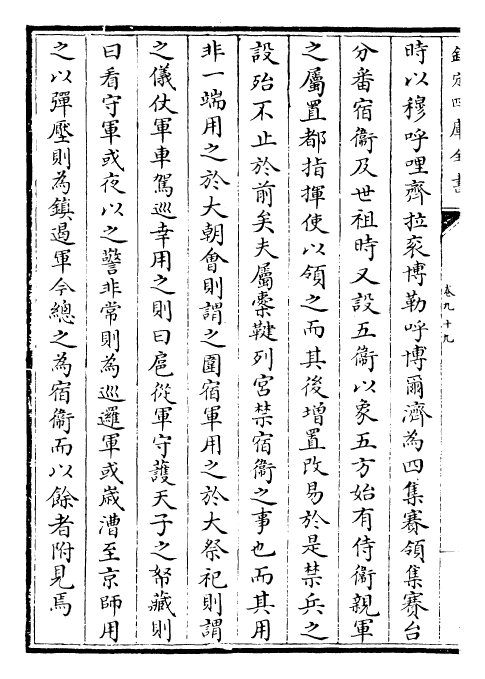 欽定四庫全書
卷九十九
時以穆呼哩齊拉衮博勒呼博爾濟為四集賽領集賽台
分番宿衛及世祖時又設五衛以象五方始有侍衛親軍
之屬置都指揮使以領之而其後增置改易於是禁兵之
設殆不止於前矣夫屬櫜鞬列宮禁宿衛之事也而其用
非一端用之於大朝會則謂之圍宿軍用之於大祭祀則謂
之儀仗軍車駕巡幸用之則曰扈從軍守護天子之帑藏則
曰看守軍或夜以之警非常則為巡邏軍或歳漕至京師用
之以彈壓則為鎮遏軍今總之為宿衛而以餘者附見焉